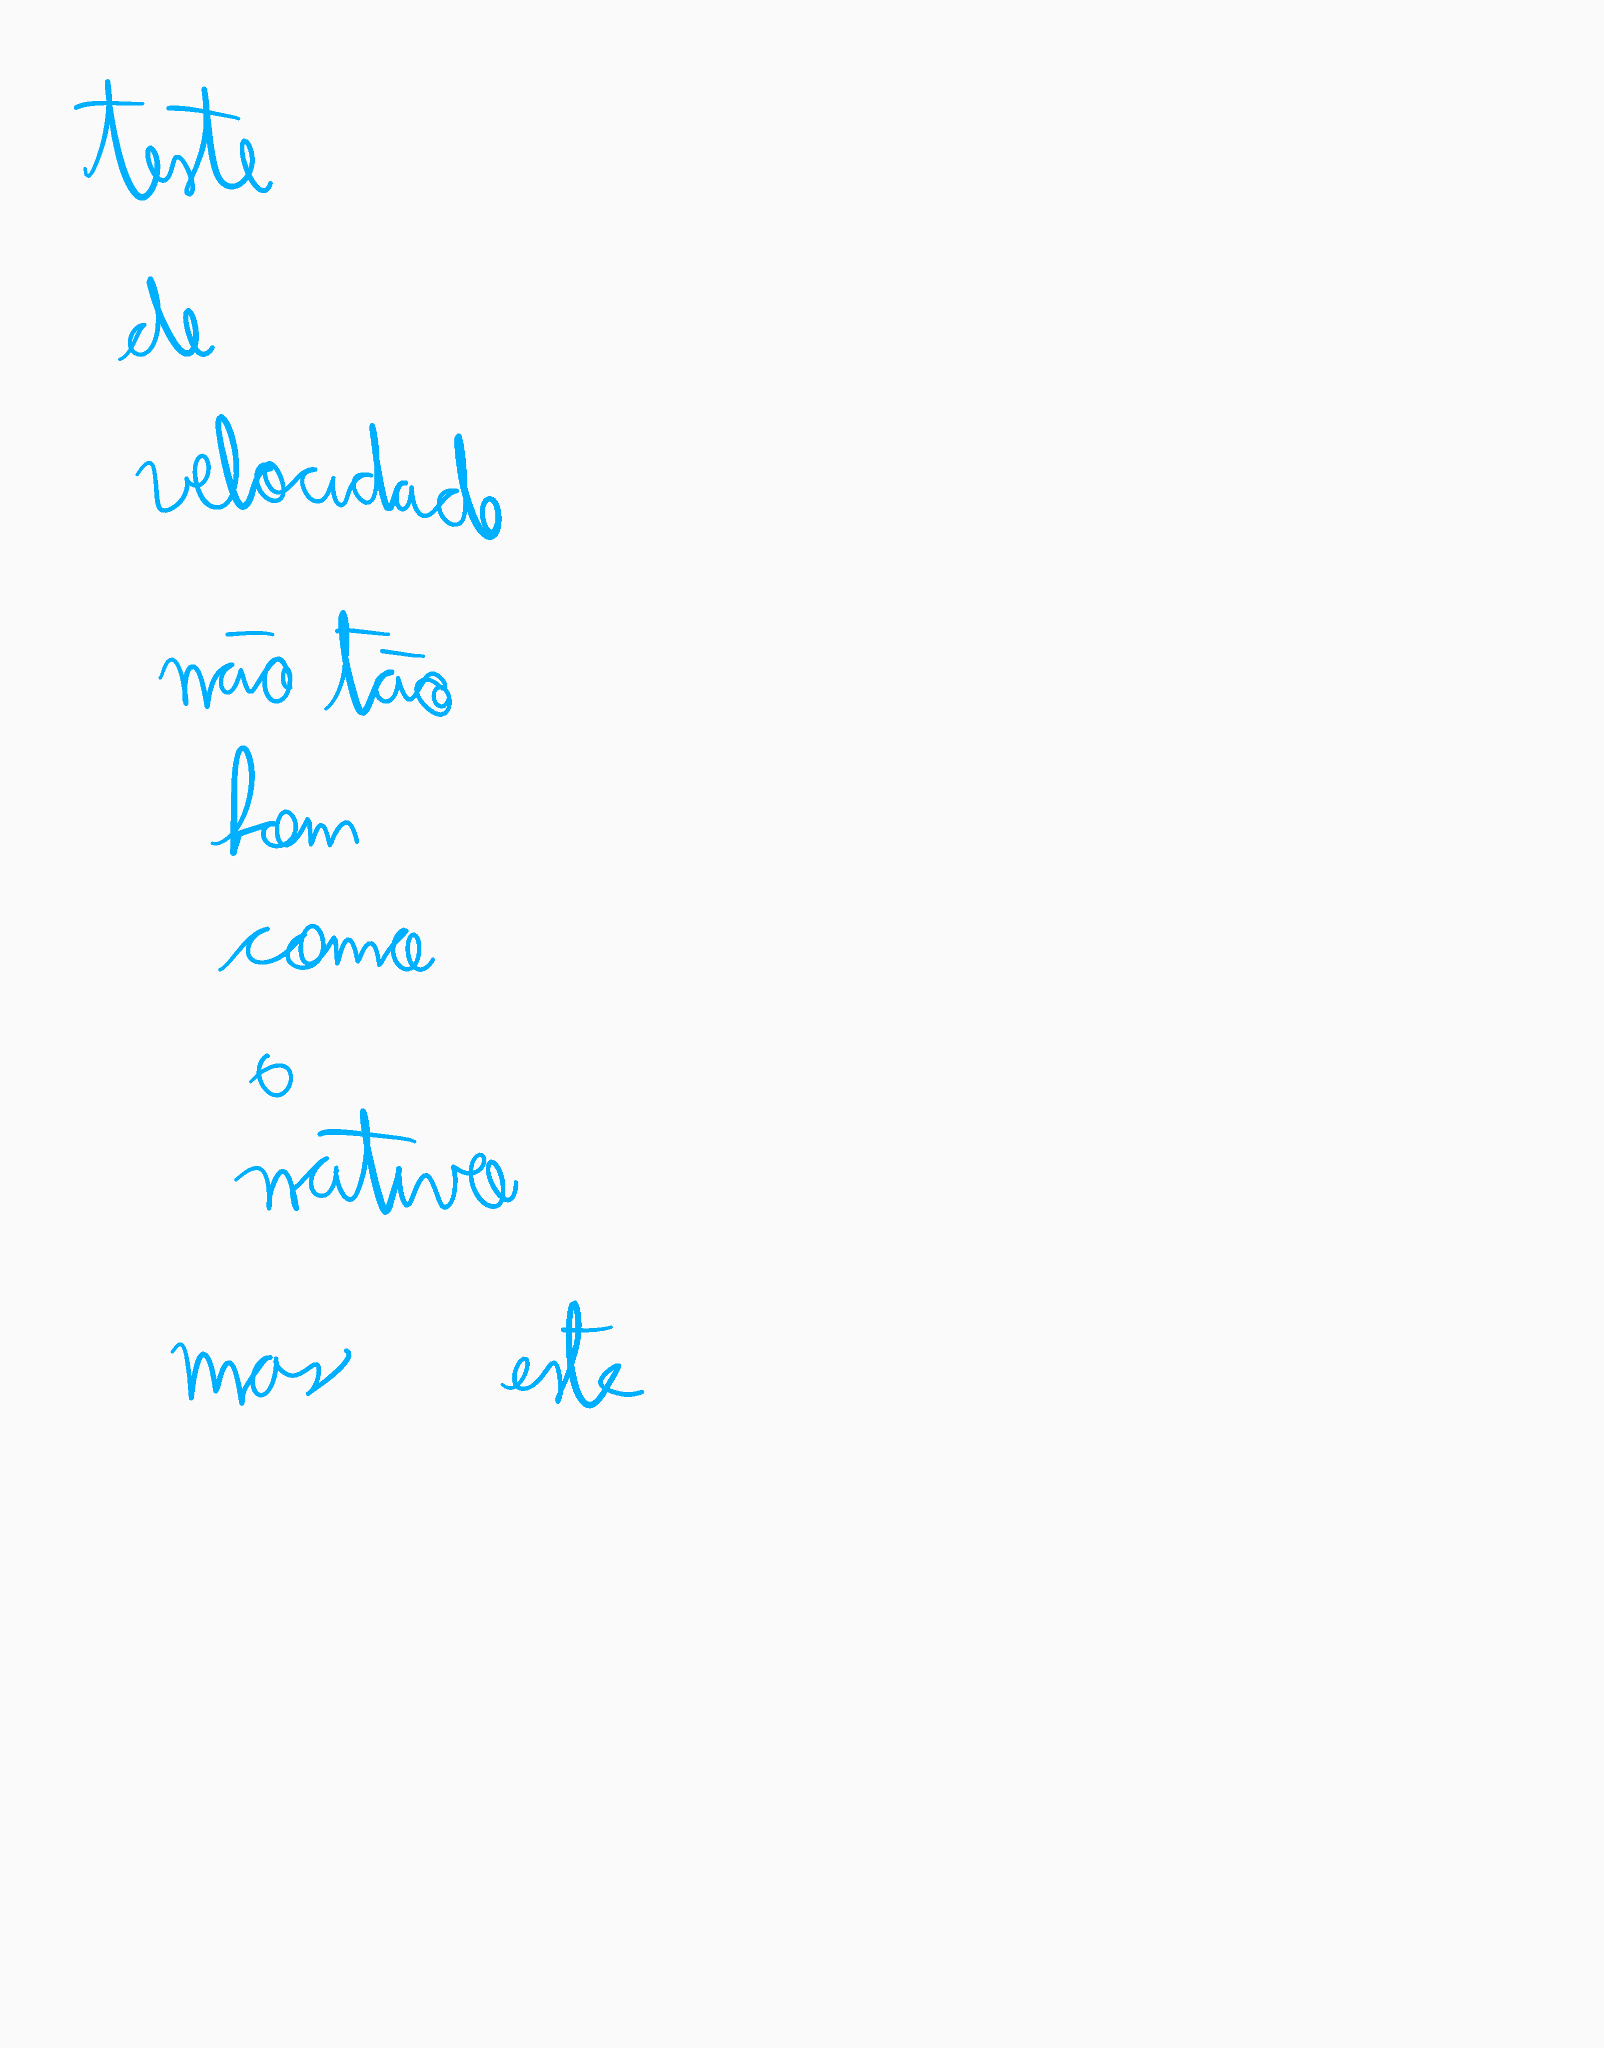 teste
de
velocidade
não tão
bom
como
o
nativo
mas este